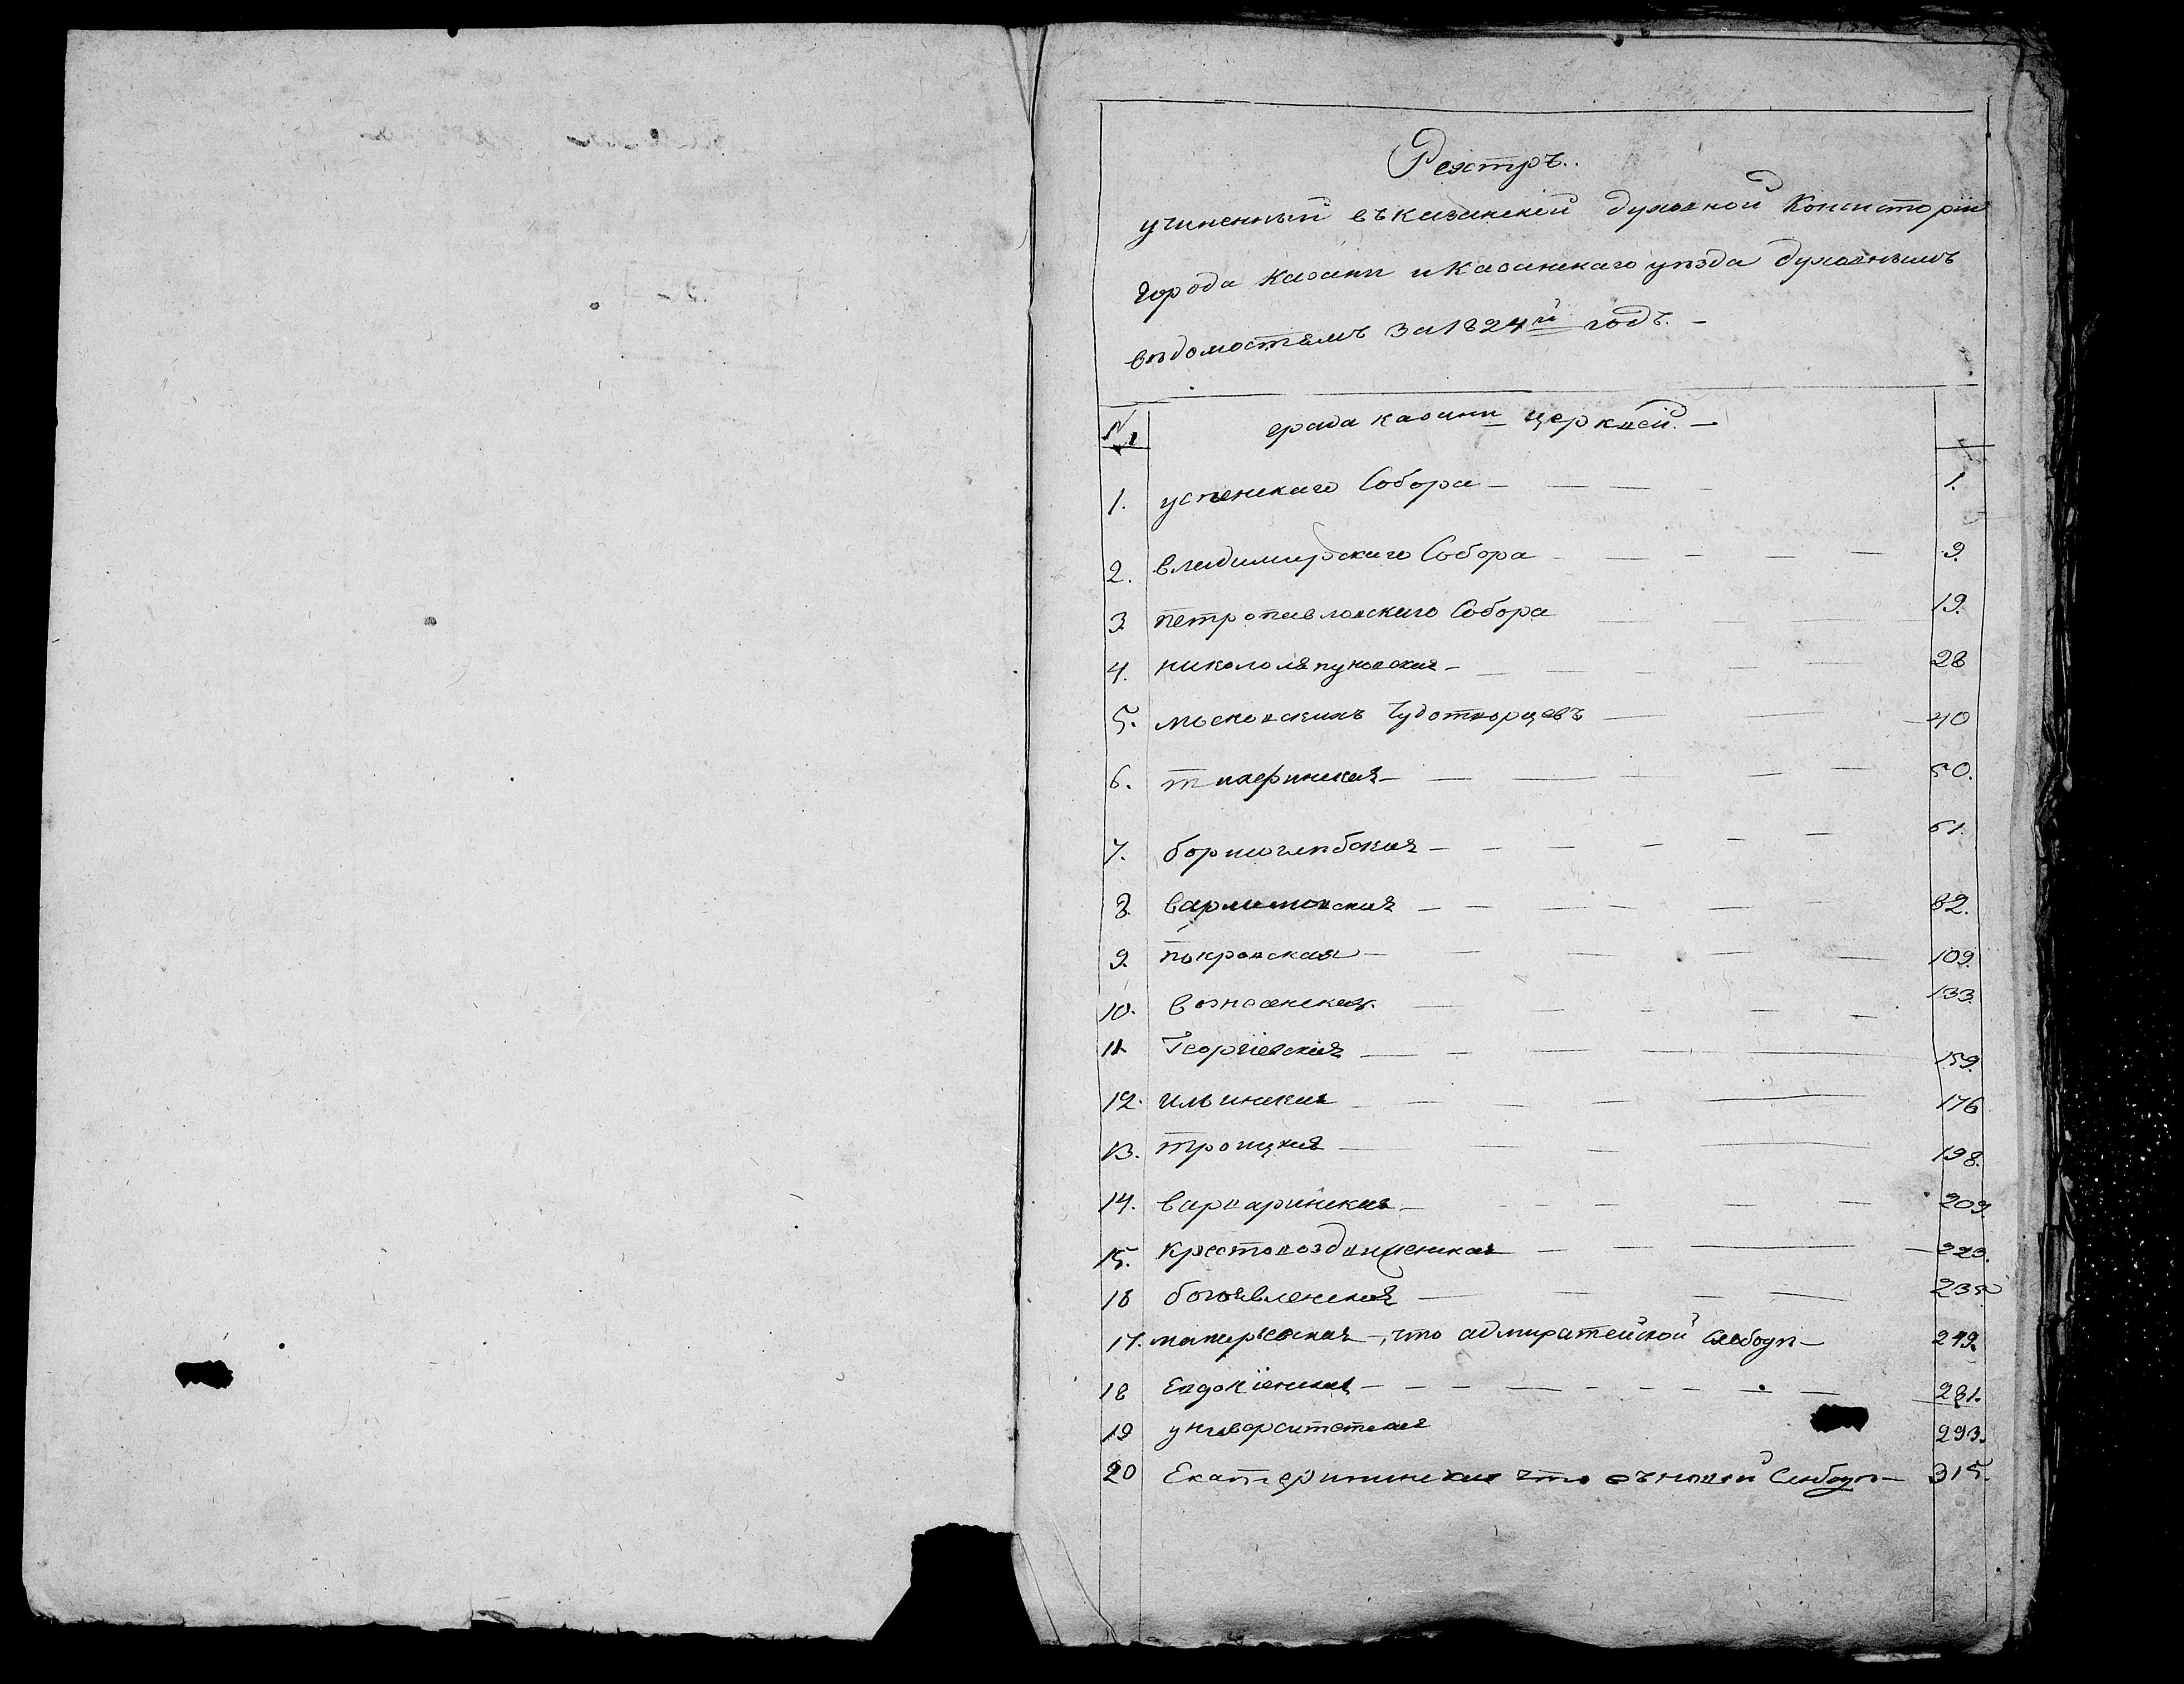 Реэстръ.
учиненный въ казанской духовной Консисторіи
города казани и казанскаго уѣзда духовнымъ
вѣдомостямъ за 1824й годъ. —
№ града казани церквей. —
1. успенскаго Собора — 1.
2. владимирскаго Собора — 9.
3. петропавловскаго Собора 19.
4. никололяпуновская — 28
5. московскихъ Чудотворцевъ — 40
6. тихвинская — 50.
7. борисоглѣбская — 61.
8. варламовская — 82.
9. покровская — 109.
10. вознесенская — 133.
11. Георгіевская — 159.
12. ильинская — 176
13. троицкая — 198.
14. варваринская — 209.
15. крестовоздвиженская — 223.
16 богоявленская — 235
17. макарьевская, что адмиратейской слободѣ — 249.
18 Евдокіевская — 281.
19 университетская 293.
20 Екатерининская что въ новой слободѣ — 315.